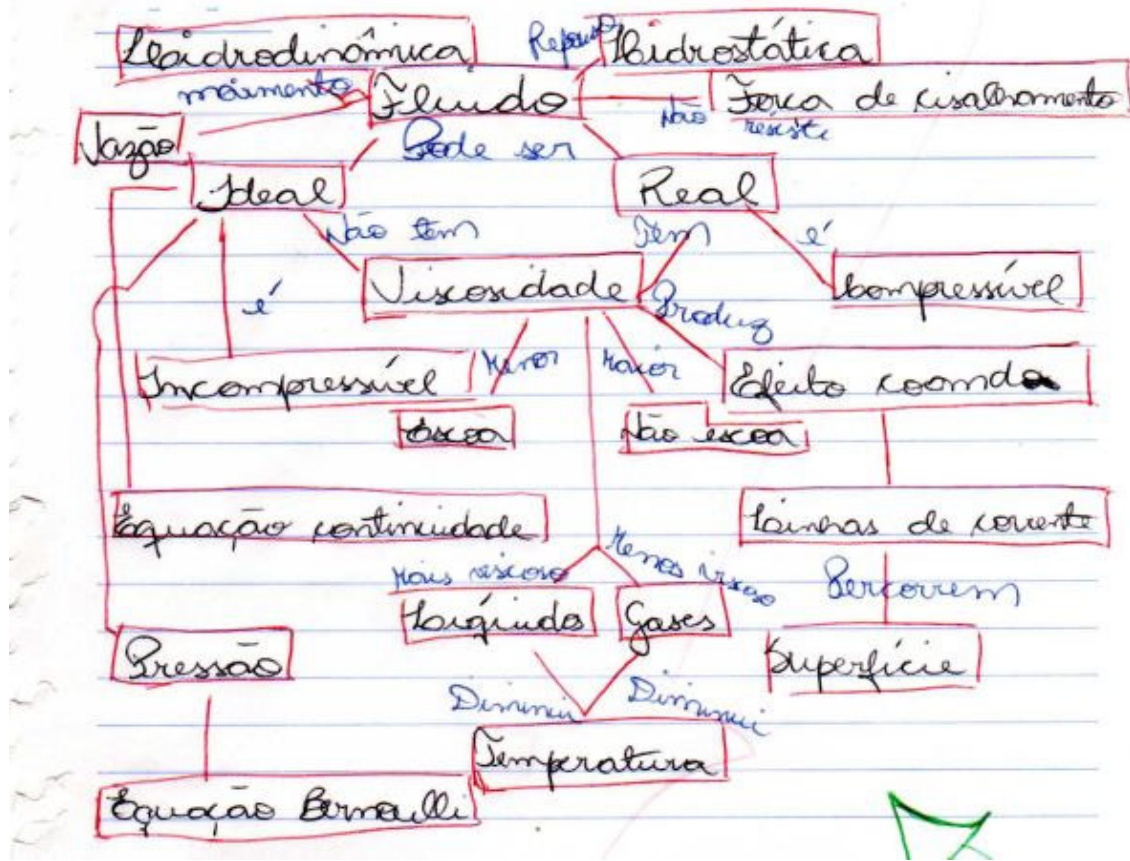 Hidrodinâmica Repouso Hidrostática
movimento Fluido Não resiste Força de cisalhamento
Vazão Pode ser
Ideal Real
Não tem Tem é
é Viscosidade Produz Compressível
Incompressível Menor Maior Efeito coanda
Escoa Não escoa
Equação continuidade Linhas de corrente
Mais viscoso Menos viscoso Percorrem
Líquidos Gases
Pressão Superfície
Diminui Diminui
Temperatura
Equação Bernoulli